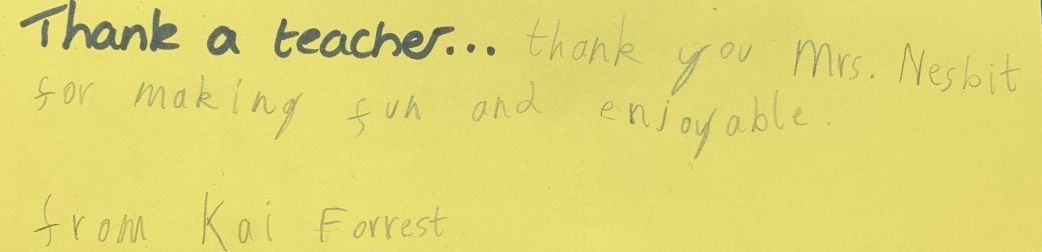 Thank a teacher... thank you Mrs. Nesbit
for making fun and enjoyable.
from Kai Forrest